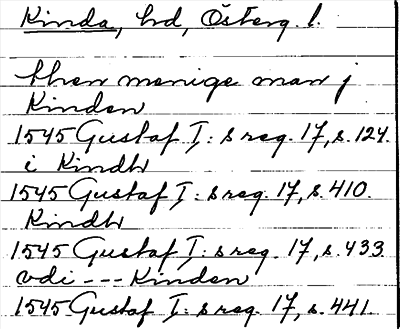 Kinda, hd, Österg. l.
then menige man j
Kinden
1545 Gustaf I:s reg. 17, s. 124.
i Kindh
1545 Gustaf I:s reg. 17, s. 410.
Kindh
1545 Gustaf I:s reg. 17, s. 433
vdi --- Kinden
1545 Gustaf I:s reg. 17, s. 441.